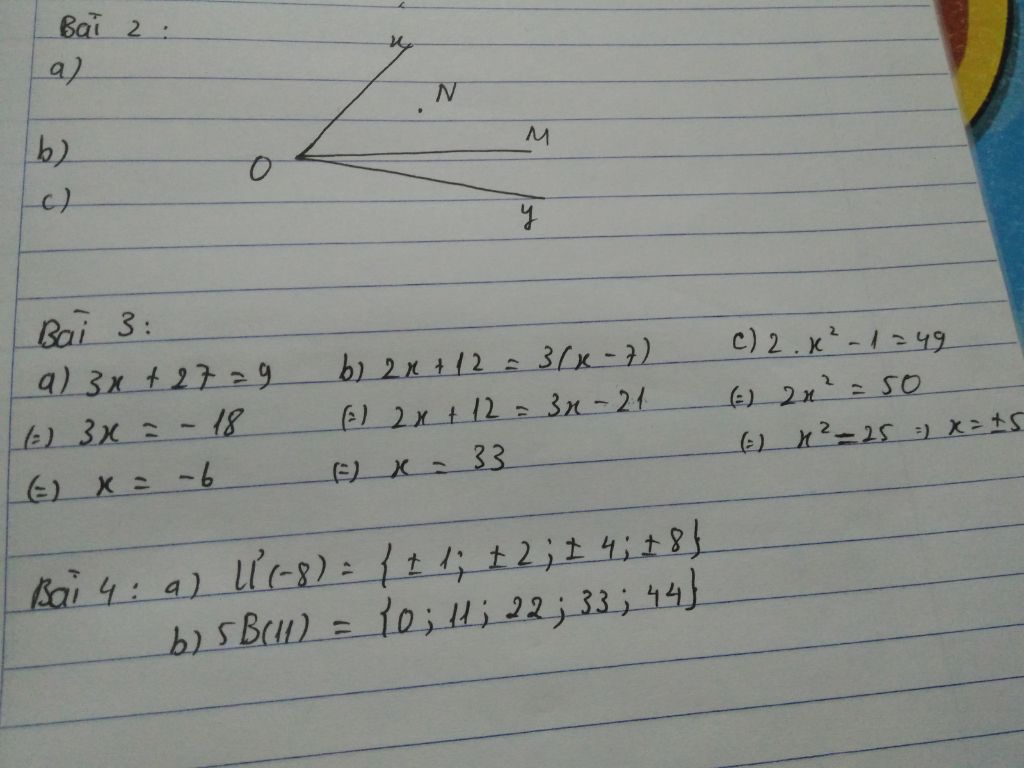 Bài 2 :
a)
x
N
b)
M
O
c)
y
Bài 3 :
a) 3x + 27 = 9 b) 2x + 12 = 3(x - 7) c) 2 . x² - 1 = 49
(=) 3x = - 18 (=) 2x + 12 = 3x - 21 (=) 2x² = 50
(=) x = -6 (=) x = 33 (=) x² = 25 =) x = ±5
Bài 4 : a) Ư(-8) = {± 1; ± 2; ± 4; ± 8}
b) 5B(11) = {0; 11; 22; 33; 44}